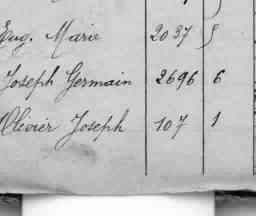 Eug. Marie 2037 5
Joseph Germain 2696 6
Olivier Joseph 107 1